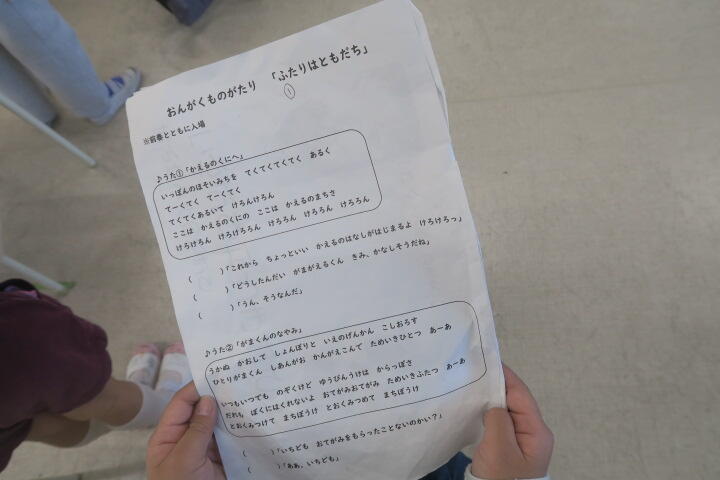 おんがくものがたり 「ふたりはともだち」
①
※前奏とともに入場
♪うた①「かえるのくにへ」
いっぽんのほそいみちを てくてくてくてく あるく
てーくてく てーくてく
てくてくあるいて けろんけろん
ここは かえるのくにの ここは かえるのまちさ
けろけろん けろけろろん けろろん けろろん けろろん
( )「これから ちょっといい かえるのはなしがはじまるよ けろけろっ」
( )「どうしたんだい がまがえるくん きみ、かなしそうだね」
( )「うん、そうなんだ」
♪うた②「がまくんのなやみ」
うかぬ かおして しょんぼりと いえのげんかん こしおろす
ひとりがまくん しあんがお かんがえこんで ためいきひとつ あーあ
いつもいつでも のぞくけど ゆうびんうけは からっぽさ
だれも ぼくにはくれないよ おてがみおてがみ ためいきふたつ あーあ
とおくみつけて まちぼうけ とおくみつめて まちぼうけ
( )「いちども おてがみをもらったことないのかい？」
( )「ああ、いちども」